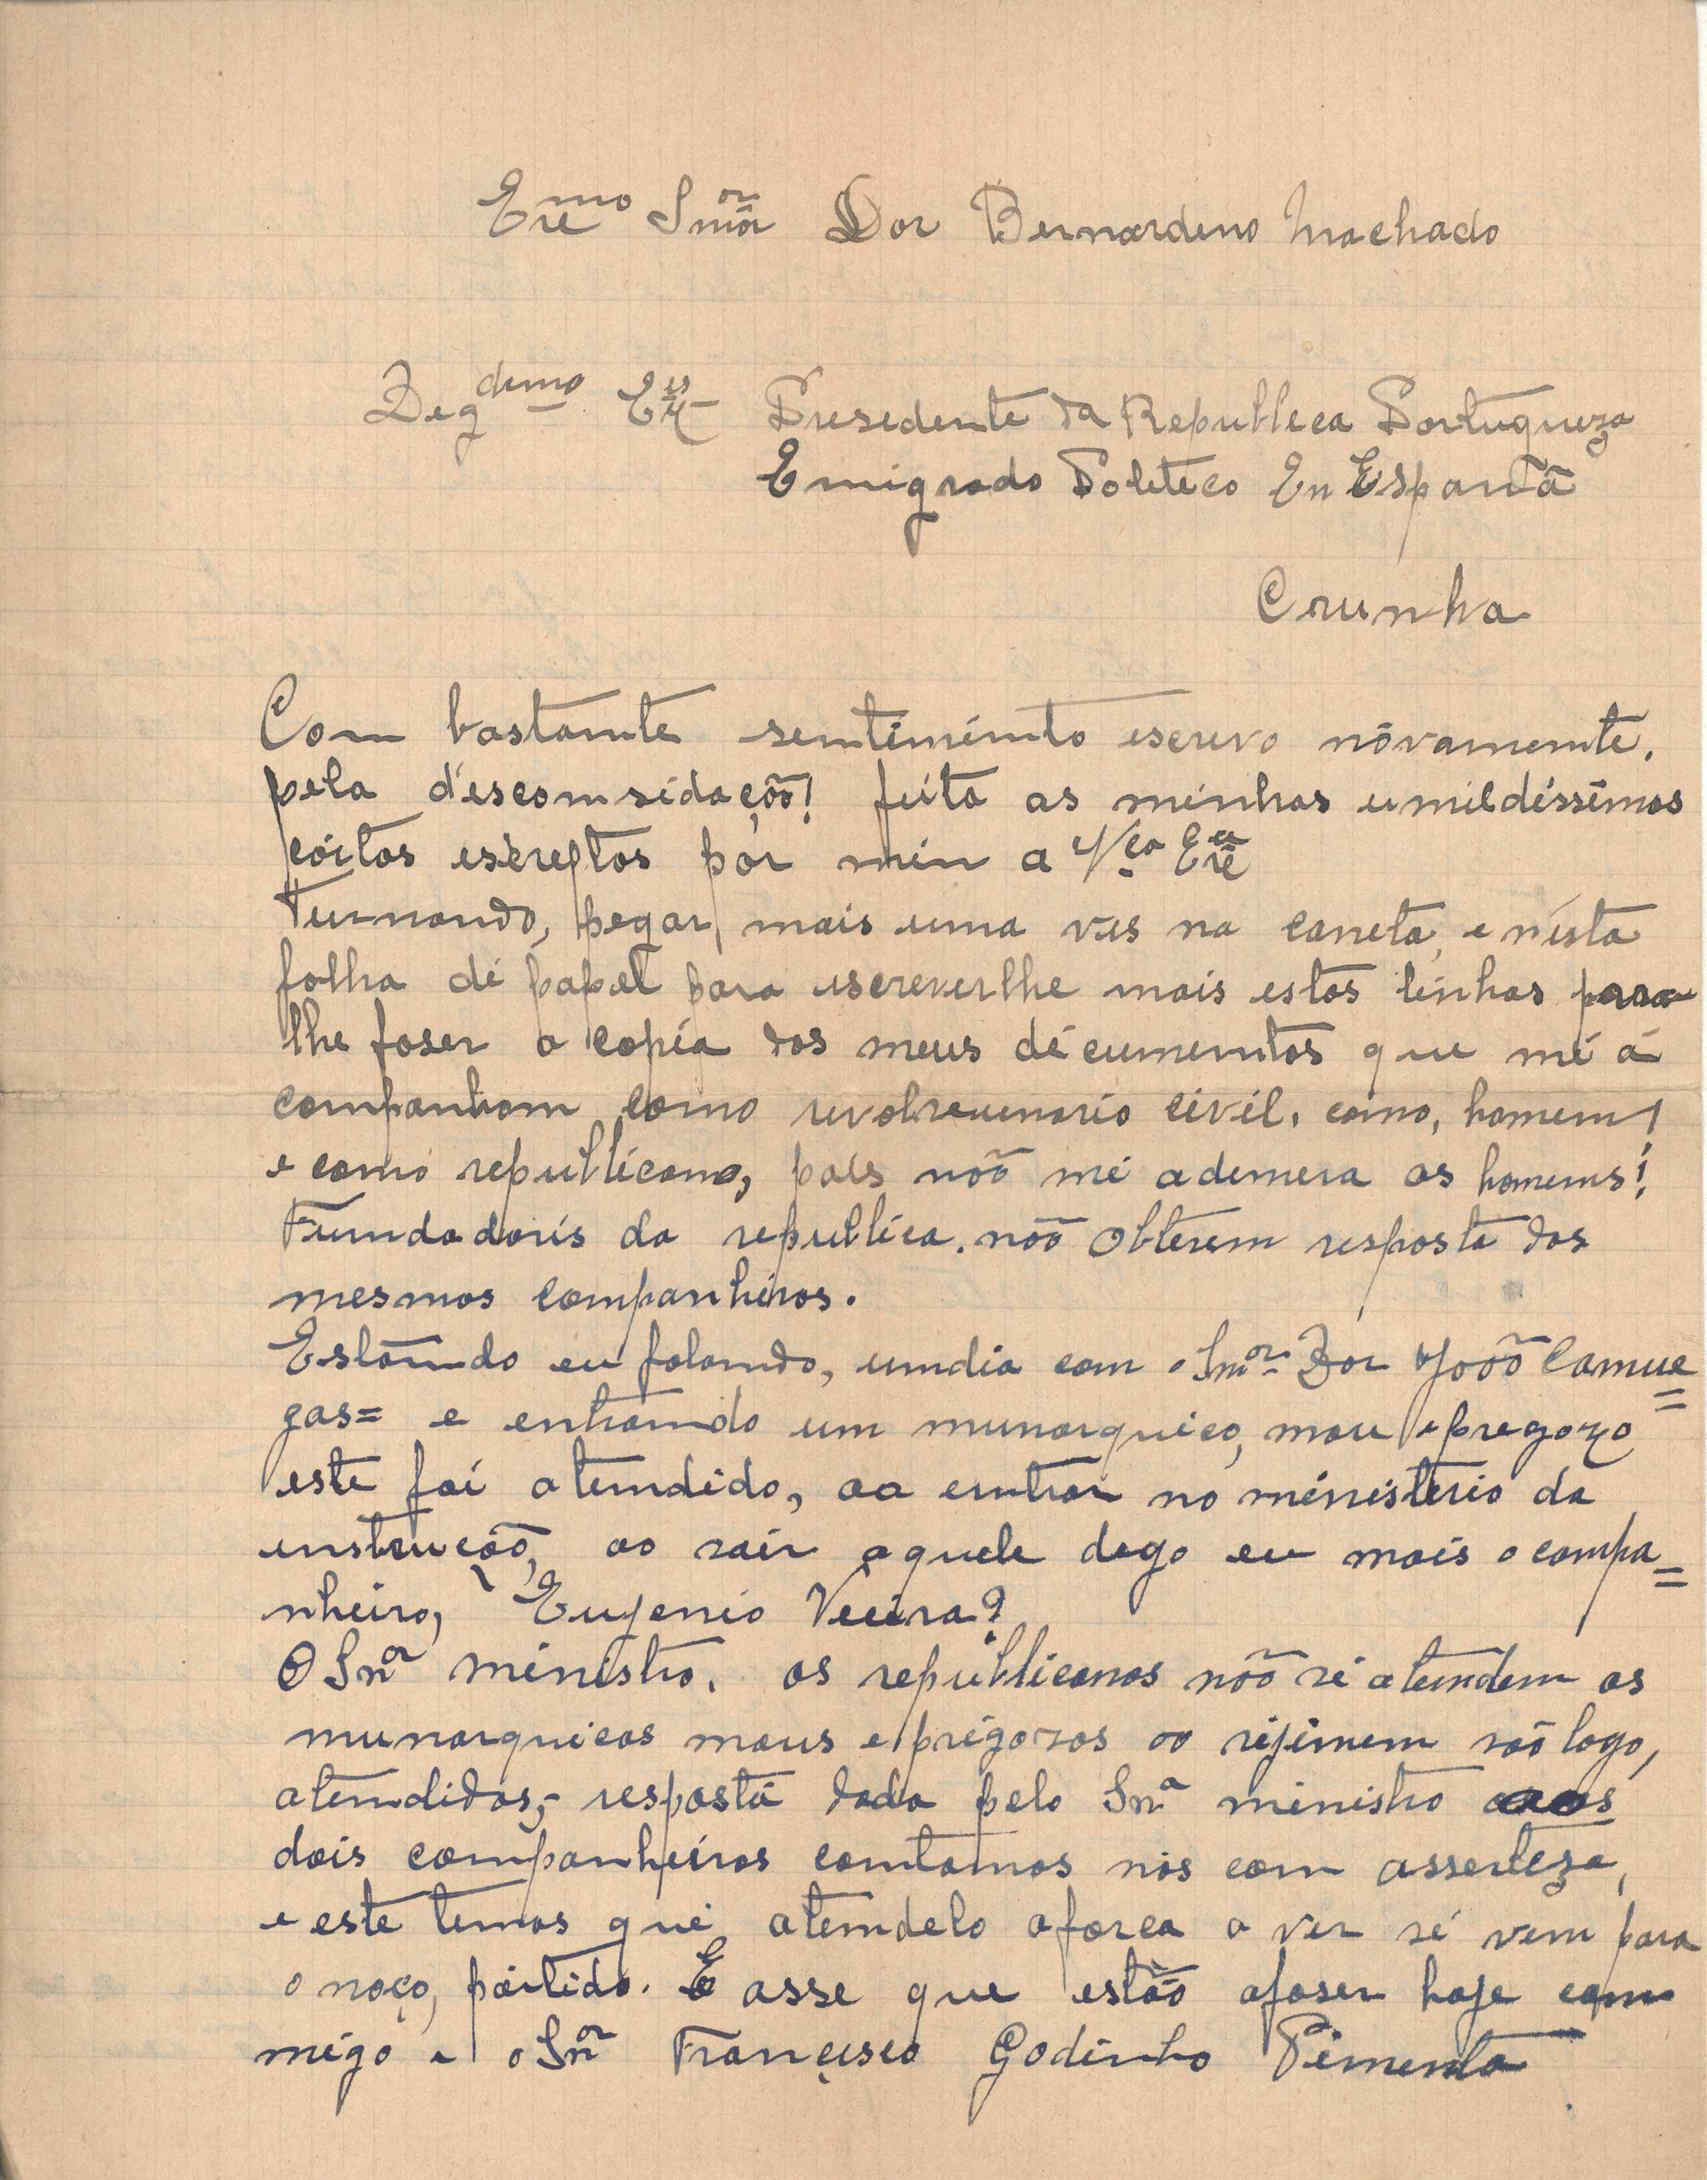 Exmo Snor Dor Bernardeno Machado
Deg demo Ex Presedente da Republeca Portugueza
Emigrado Poleteco En Espanã
Crunha
Com bastante sentiménto escrevo nóvamente,
pela descomsidação! feita as minhas umildissimas
cártas escreptas por min a Vça Exª
Turnando, pegar, mais uma ves na caneta, e nésta
folha dé papel para escreverlhe mais estas linhas para
lhe faser a copia dos meus décumentos que mé á
companham como revolucunario civil, como, homem!
e como republicano, pois não mé ademera os homens!
Fundadoris da republica. não obterem resposta dos
mesmos companheiros.
Estando eu falando, umdia com o Snor Dor João Camue=
gas= e entrando um munarquico, mau e pregozo
este foi atendido, ao entrar no ministério da
instrução, ao sair aquele dego eu mais o compa=
nheiro, Eugenio Vieira?
O Snor ministro. os republicanos não sé atendem os
munarquicos maus e prégozos ao réjimem são logo,
atendidos;- resposta dada pelo Snr ministro aos
dois companheiros contamos nós com asserteza,
e este temos qué atendelo aforca a ver sé vem para
o noço, pártido. E asse que estão afaser hoje com
migo e o Snor Françisco Godinho Pimenta